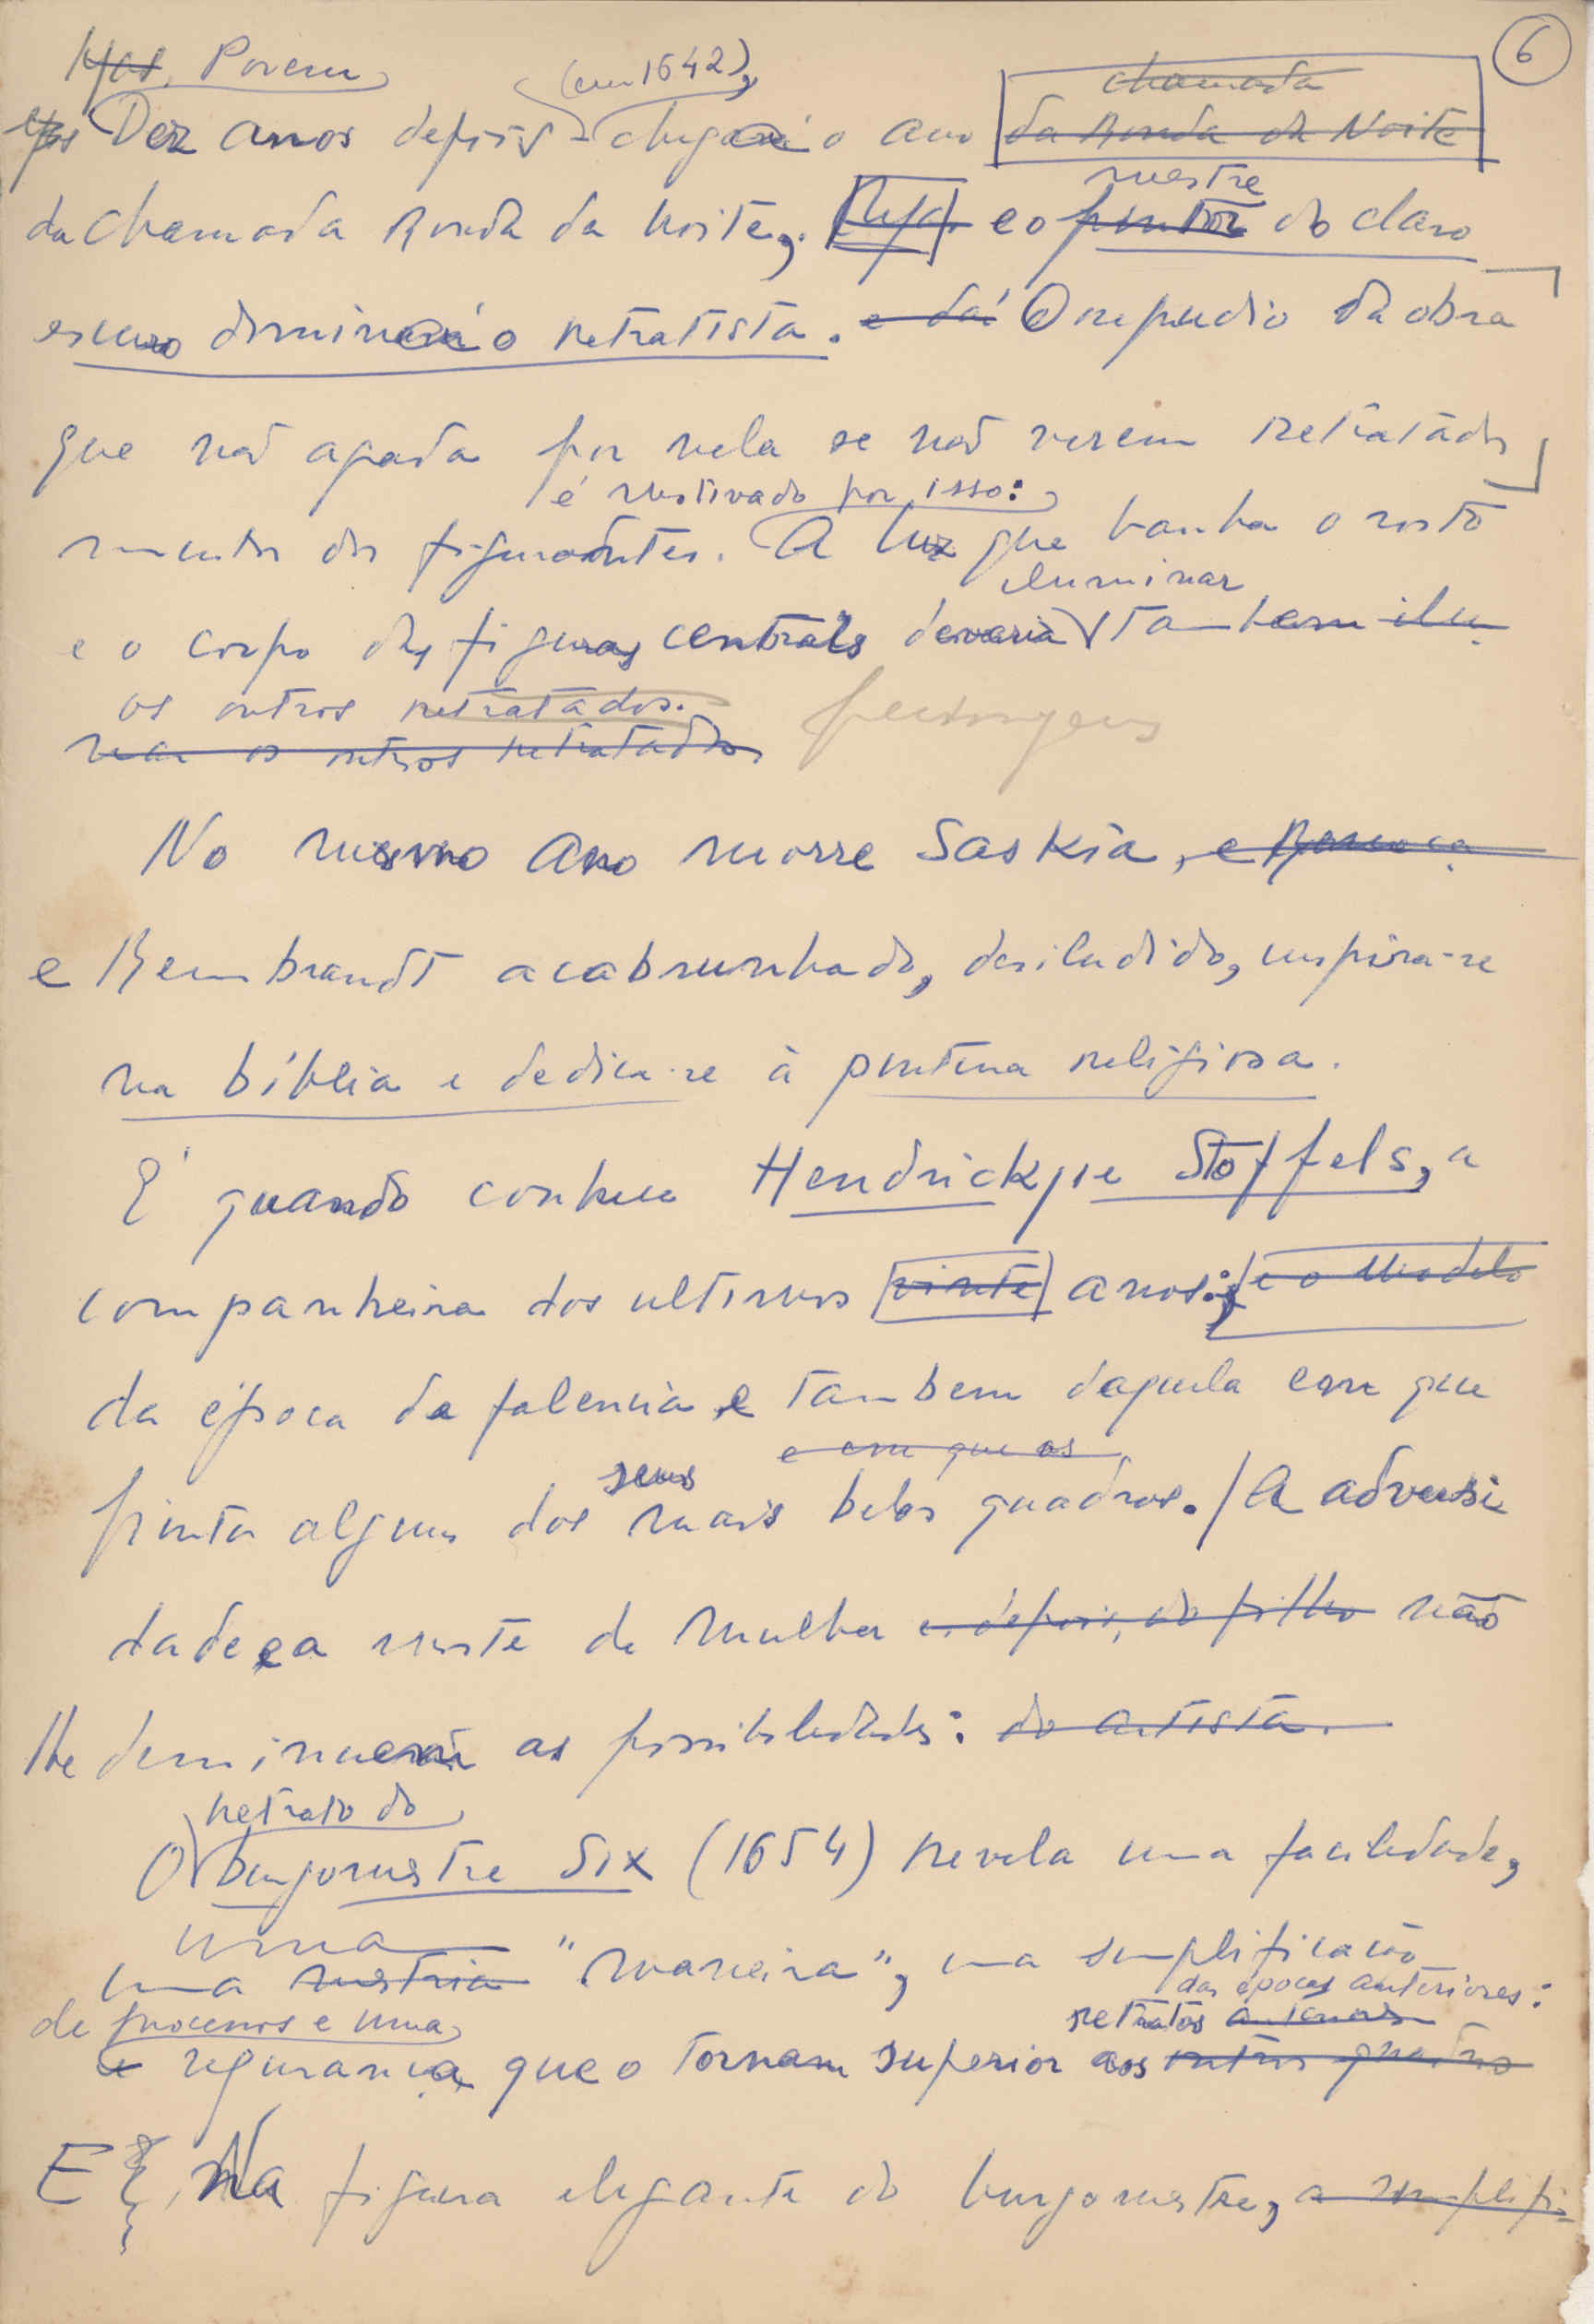 6
Mas, Porem
(em 1642),
chamada
Dez anos depois chega o ano da Ronda da Noite
mestre
da chamada Ronda da Noite, e o pintor do claro
escuro domina o retratista. e dá O repudio da obra
que não agrada por nela se não verem retratados
é motivado por isso:
muitos dos figurantes. A luz que banha o rosto
iluminar
e o corpo das figuras centrais deveria tambem ilu
os outros retratados. personagens
nar os outros retratados
No mesmo ano morre Saskia, e
e Rembrandt acabrunhado, desiludido, inspira-se
na bíblia e dedica-se à pintura religiosa.
É quando conhece Hendrickje Stoffels, a
companheira dos ultimos vinte anos; e o modelo
da época da falencia e tambem daquela em que
e em que os
seus
pinta alguns dos mais belos quadros. / A adversi
dade e a morte da mulher e, depois, do filho não
lhe diminuem as possibilidades: do artista.
retrato do
O burgomestre Six (1654) revela uma facilidade,
uma
uma mestria "maneira", uma simplificação
das épocas anteriores:
de processos e uma
retratos
e segurança que o tornam superior aos outros quadros
E Na figura elegante do burgomestre, a simplifi-